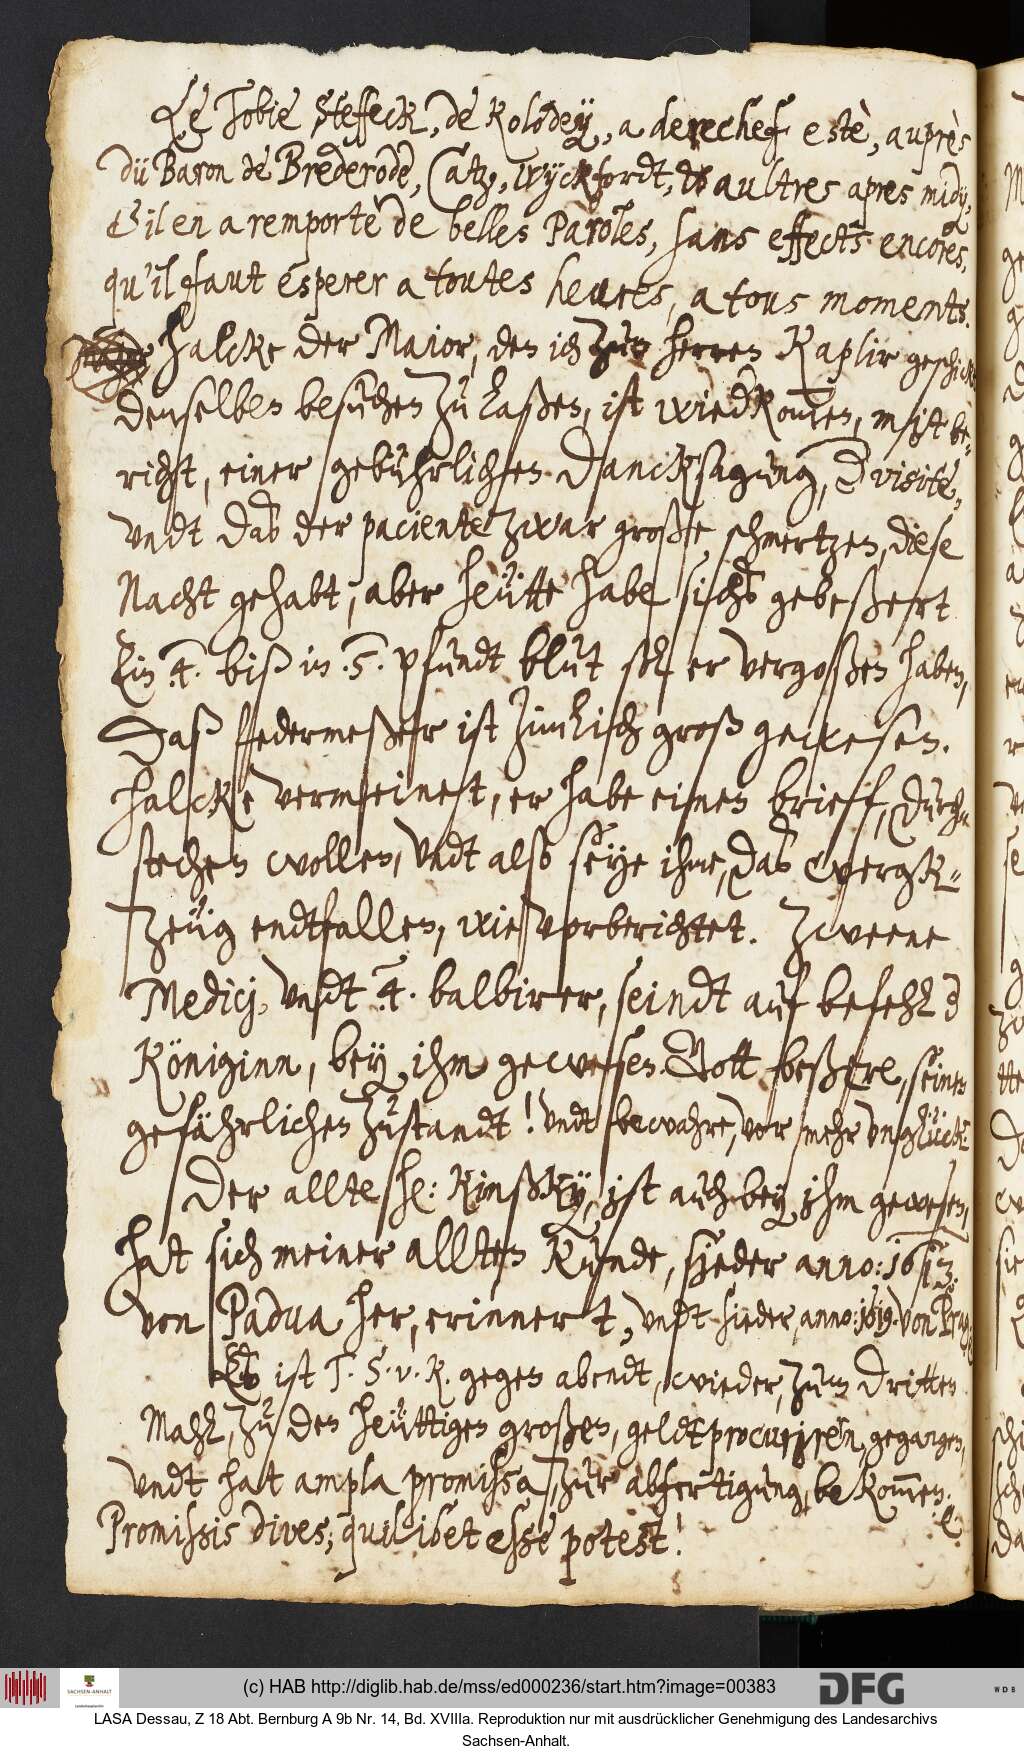 Le Tobie Steffeck, de Kolodey, a derechef estè, auprès
dü Baron de Brederode, Catz, Wyckfordt, & aultres apres midy,
& il en a remportè de belles Paroles, sans effects encores,
qu'il faut esperer a toutes heures, a tous moments.
Halcke der Maior, den ich zum herren Kaplir geschickt
denselben besuchen zu laßen, ist wiedkommen, mitt be-
richt, einer gebührlichen dancksagung, d visite,
vndt das der paciente zwar große schmertzen, diese
Nacht gehabt, aber heütte habe sichs gebeßert
Ein .4. biß in .5. pfundt blut soll er vergoßen haben,
Daß Federmeßer ist zimlich groß gewesen.
Halcke vermeinet, er habe einen brieff, durch-
stechen wollen, vndt also seye ihme, das wergk-
zeüg endtfallen, wie vorberichtet. Zweene
Medicj, vndt .4. balbirer, seindt auf befehl d
Königinn, bey ihm gewesen. Gott beßere, seinen
gefährlichen zustandt! vndt bewahre, vor mehr vnglück.
Der allte he: Kinßky, ist auch bey ihm gewesen,
hat sich meiner allten Kunde, sieder anno: 1613.
von Padua her, erinnert, vndt sieder, anno: 1619. von Prag
Es ist T. S. v. K. gegen abendt, wieder, zum dritten
Mahl, zu den heüttigen großen, geldt procuriren, gegangen,
vndt hat ampla promissa, zur abfertigung, bekommen. &.
Promissis dives, quilibet esse potest!
(c) HAB http://diglib.hab.de/mss/ed000236/start.htm?image=00383
DFG
WDB
SACHSEN-ANHALT
LASA Dessau, Z 18 Abt. Bernburg A 9b Nr. 14, Bd. XVIIIa. Reproduktion nur mit ausdrücklicher Genehmigung des Landesarchivs
Sachsen-Anhalt.